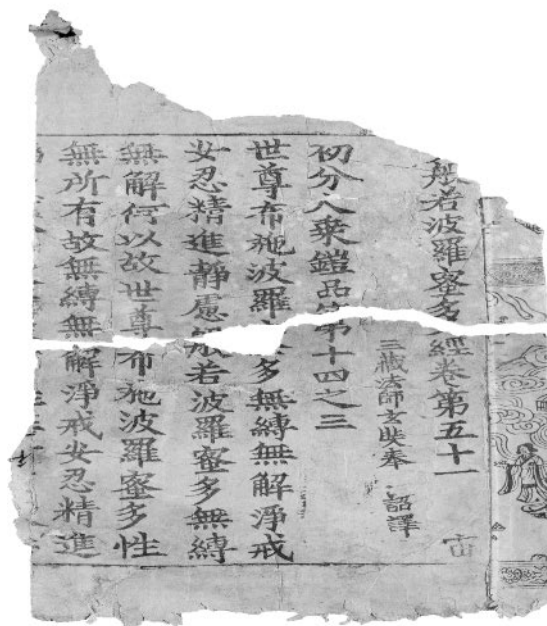 般若波羅蜜多經卷第五十一 宙
三藏法師玄奘奉 詔譯
初分大乘鎧品第十四之三
世尊布施波羅多無縛無解淨戒
安忍精進靜慮般若波羅蜜多無縛
無解何以故世尊布施波羅蜜多性
無所有故無縛無解淨戒安忍精進